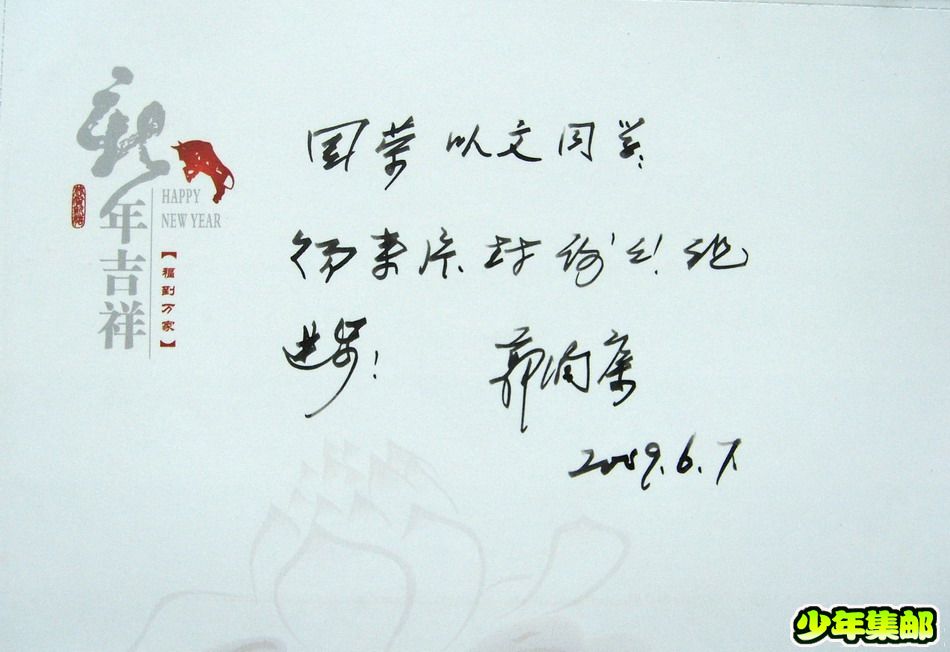 新年吉祥
HAPPY
NEW YEAR
【福到万家】
国荣以文同学:
你来信,
进步!
郭润康
2009.6.7
少年集邮